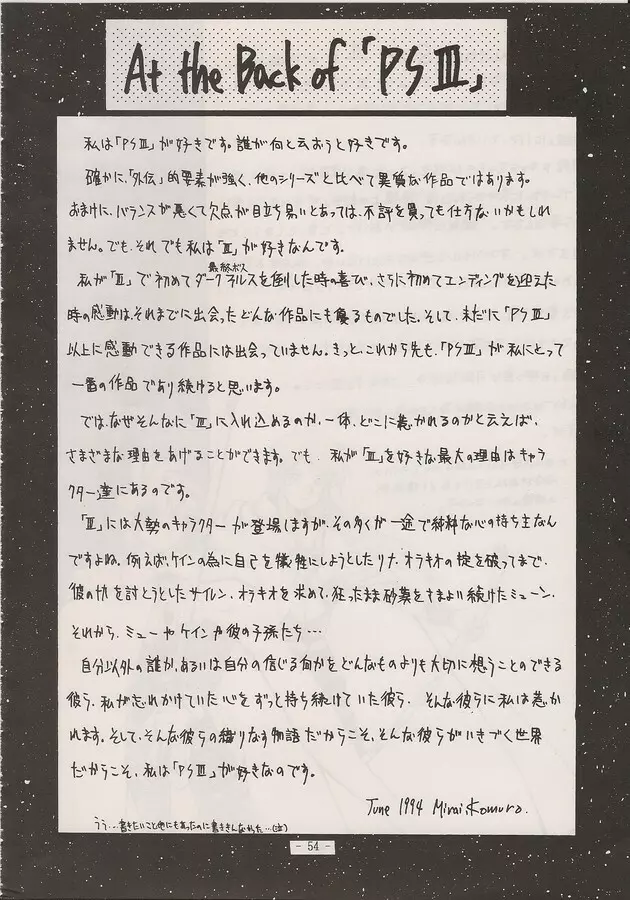 At the Back of「PSⅢ」
私は「PSⅢ」が好きです。誰が何と云おうと好きです。
確かに、「外伝」的要素が強く、他のシリーズと比べて異質な作品ではあります。
おまけに、バランスが悪くて欠点が目立ち易いとあっては、不評を買っても仕方ないかもしれ
ません。でも、それでも私は「Ⅲ」が好きなんです。
最終ボス
私が「Ⅲ」で初めてダークネルスを倒した時の喜び、さらに初めてエンディングを迎えた
時の感動は、それまでに出会ったどんな作品にも優るものでした。そして、未だに「PSⅢ」
以上に感動できる作品には出会っていません。きっと、これから先も、「PSⅢ」が私にとって
一番の作品であり続けると思います。
では、なぜそんなに「Ⅲ」に入れ込めるのか、一体、どこに惹かれるのかと云えば、
さまざまな理由をあげることができます。でも、私が「Ⅲ」を好きな最大の理由はキャラ
クター達にあるのです。
「Ⅲ」には大勢のキャラクターが登場しますが、その多くが一途で純粋な心の持ち主なん
ですよね。例えば、ケインの為に自己を犠牲にしようとしたリナ、オラキオの掟を破ってまで、
彼の仇を討とうとしたサイレン、オラキオを求めて、狂ったまま砂漠をさまよい続けたミューン、
それから、ミューやケインや彼の子孫たち…
自分以外の誰か、あるいは自分の信じる何かをどんなものよりも大切に想うことのできる
彼ら、私が忘れかけていた心をずっと持ち続けていた彼ら、そんな彼らに私は惹か
れます。そして、そんな彼らの織りなす物語だからこそ、そんな彼らがいきづく世界
だからこそ、私は「PSⅢ」が好きなのです。
June 1994 Mirai.Komuro.
うう…書きたいこと他にもあったのに書ききんなかった…(泣)
- 54 -